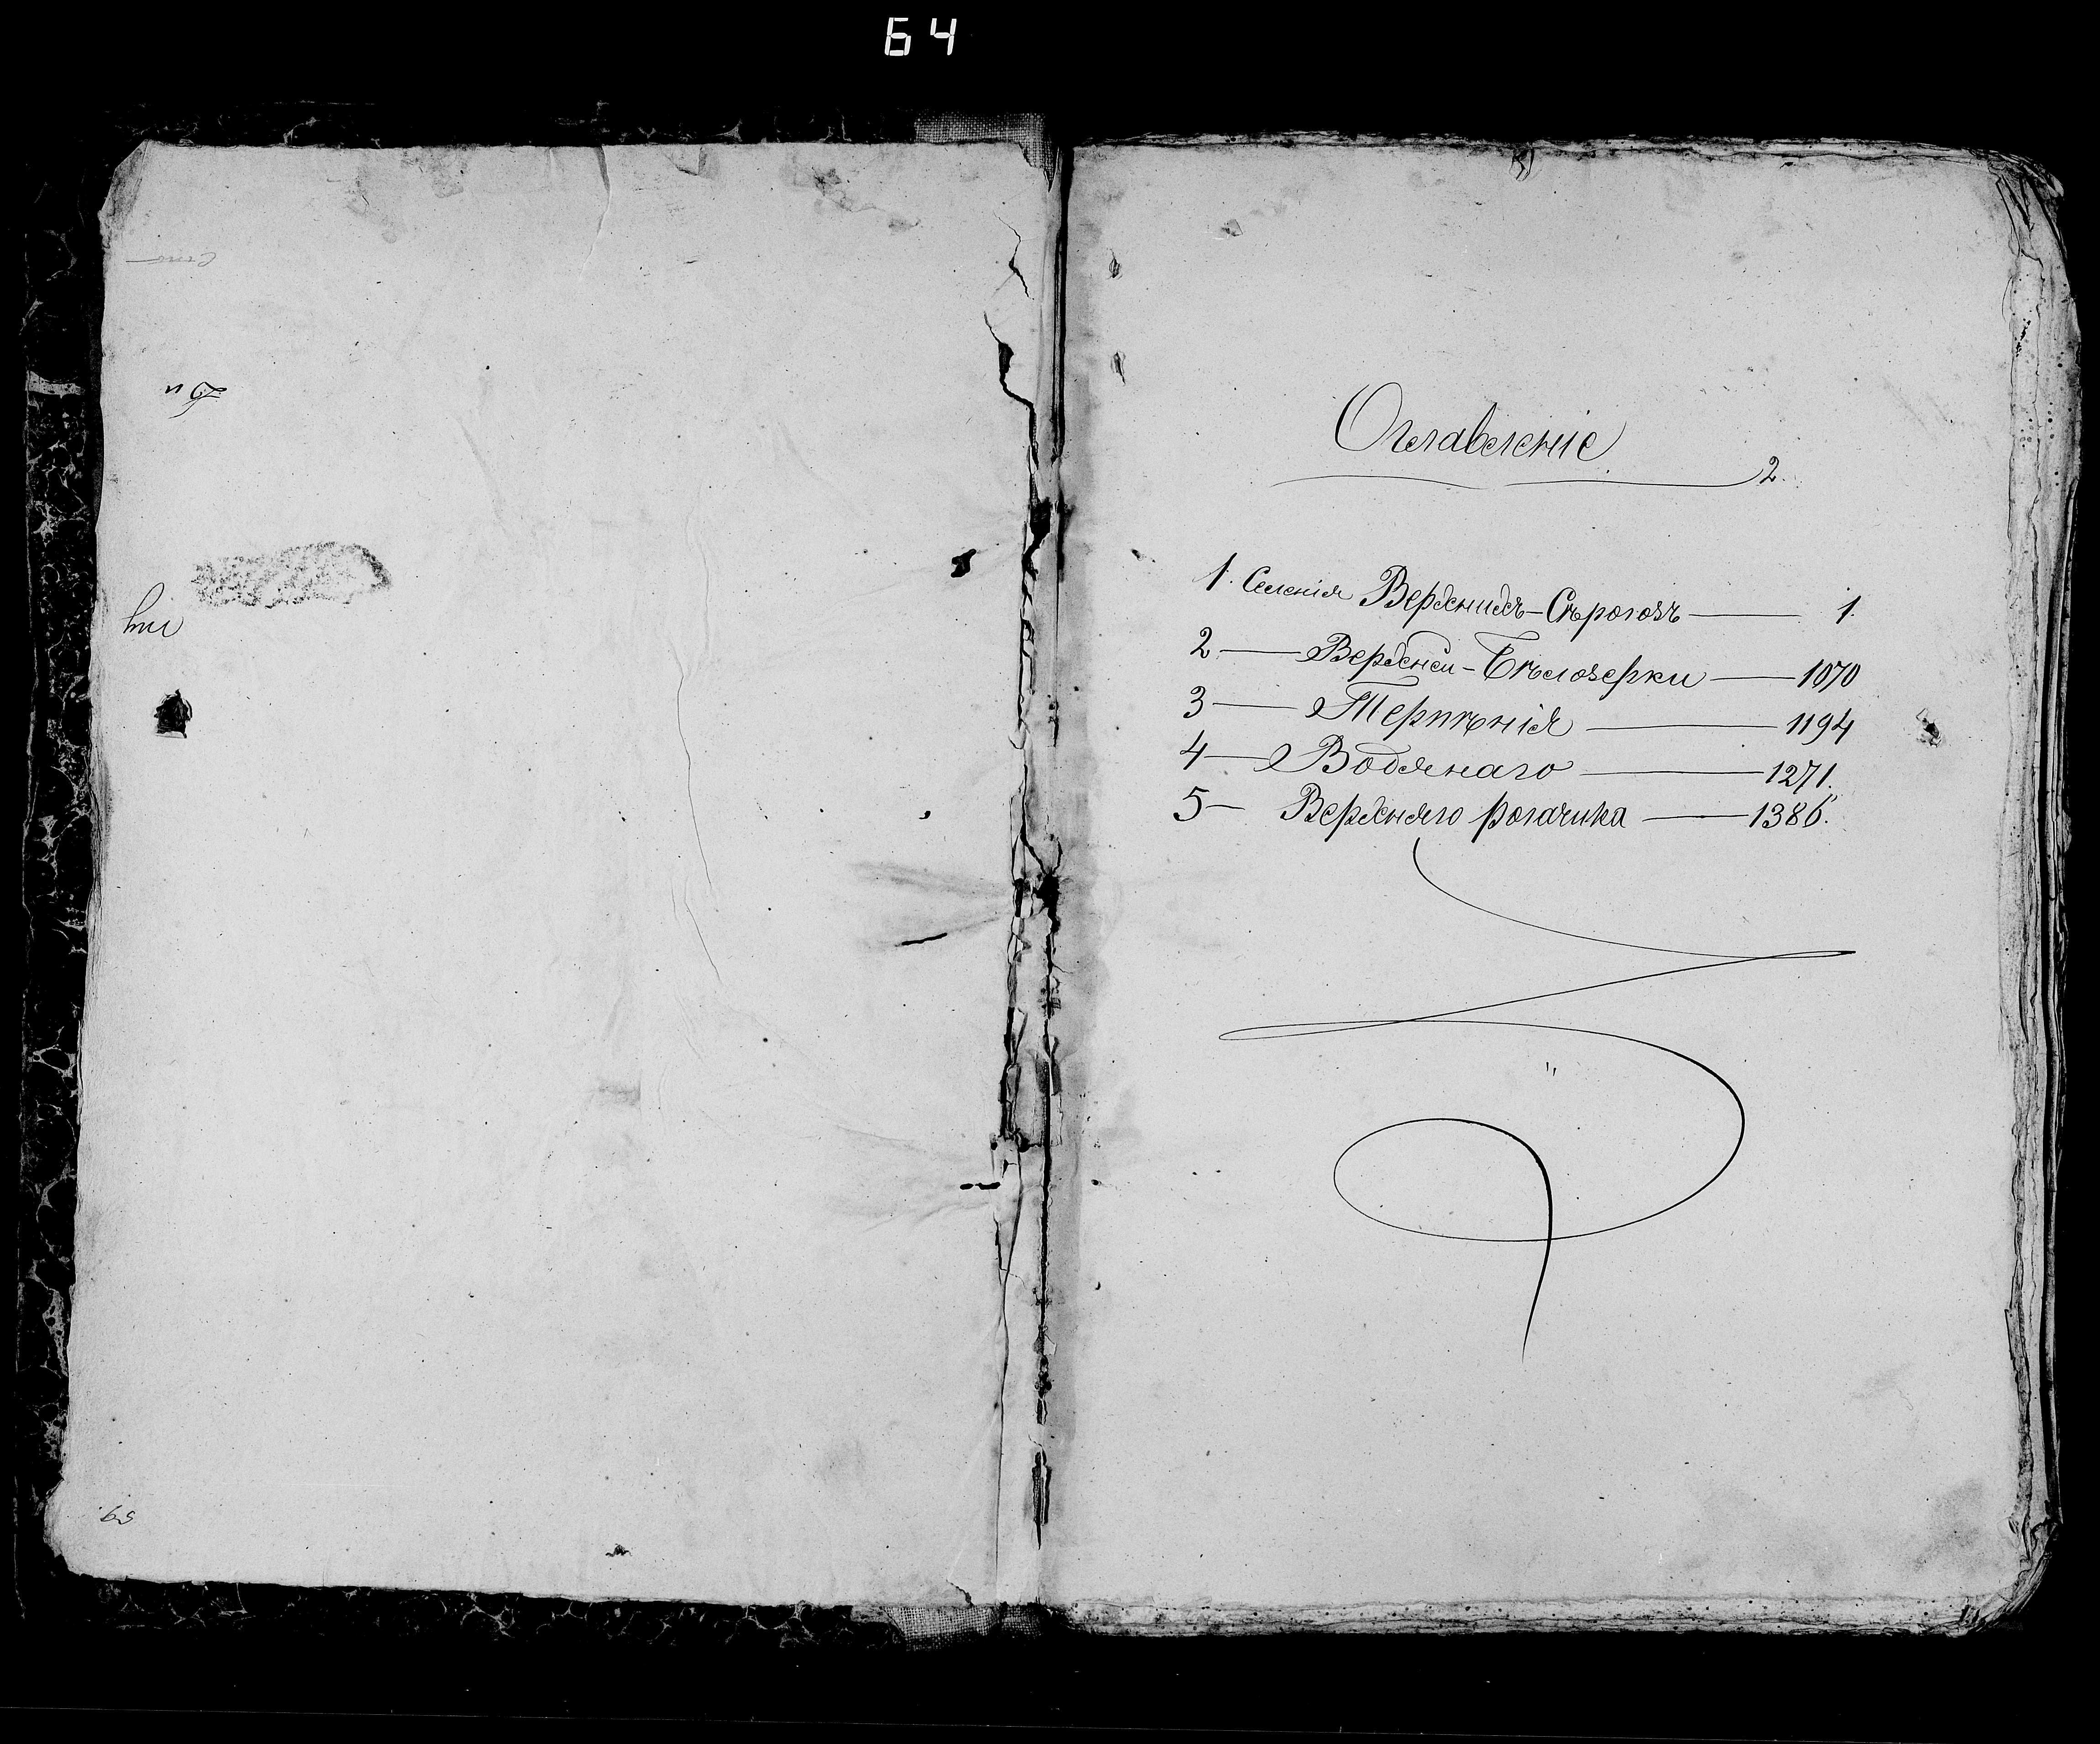 64
Оглавленіе
2.
1. Селенія Верхнихъ-Сѣрогозъ — 1.
2 — Верхней-Бѣлозерки — 1070
3 — Терпѣнія — 1194
4 — Водянаго — 1271.
5 — Верхняго рогачика — 1386.